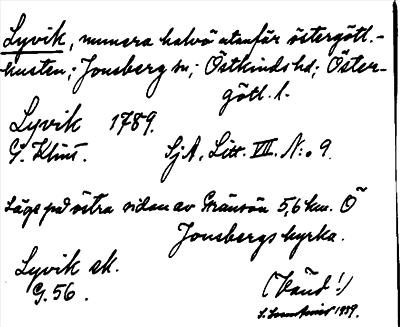 Lyvik, numera halvö utanför östergötl.-
kusten; Jonsberg sn; Östkinds hd; Öster-
götl. l.
Lyvik 1789.
G. Klint. SjA, Litt. VII. N:o 9.
Läge på östra sidan av Gränsön 5,6 km. Ö
Jonsbergs kyrka.
Lyvik ek.
G. 56. (Känd!)
1939.